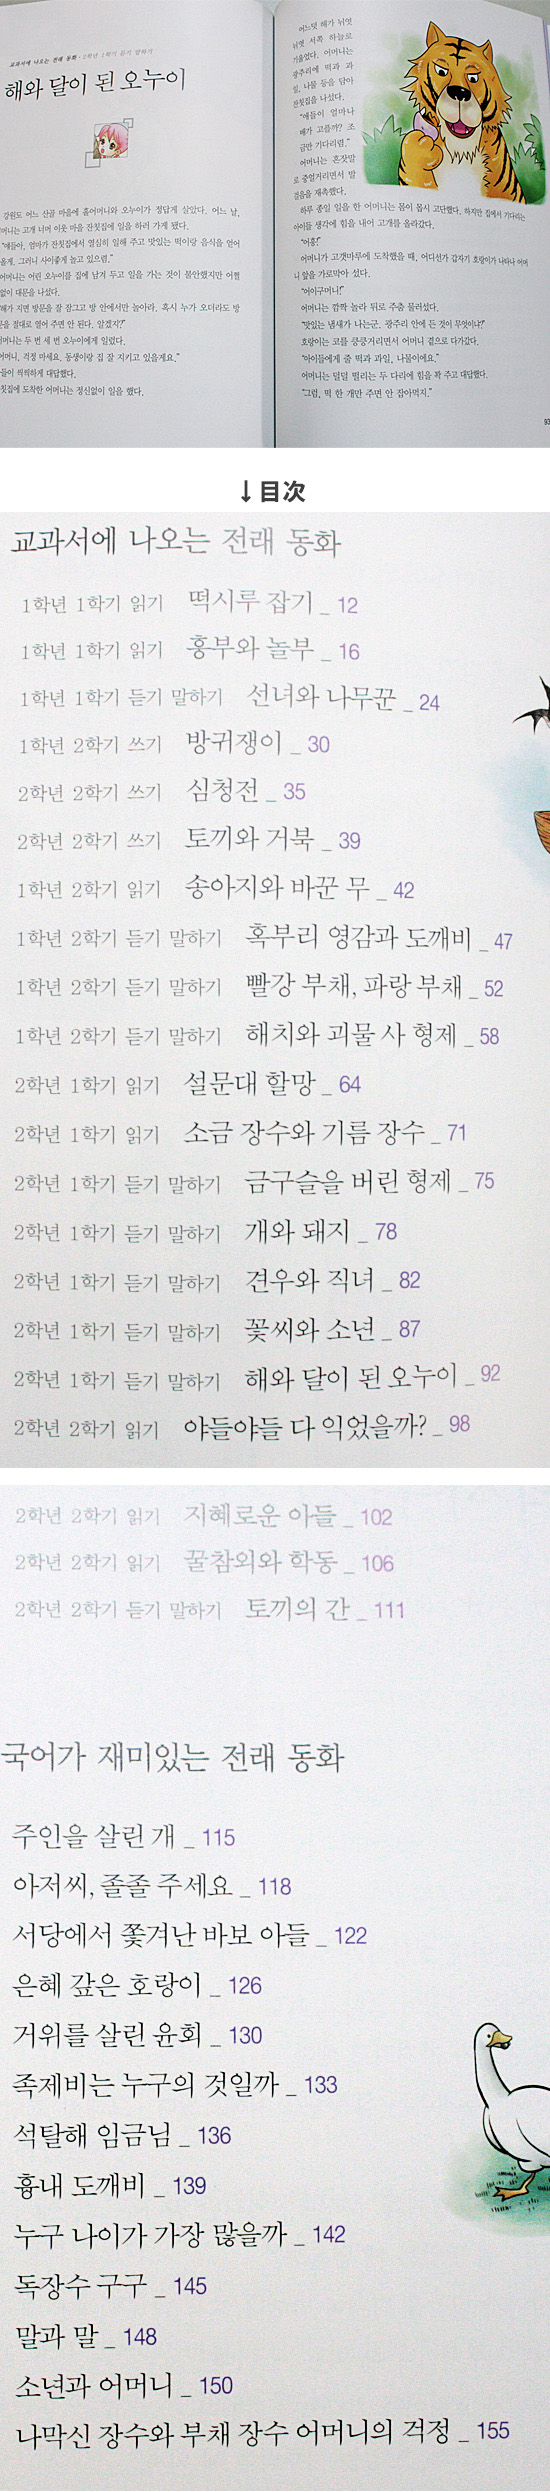 교과서에 나오는 전래 동화 · 2학년 1학기 듣기 말하기
해와 달이 된 오누이
강원도 어느 산골 마을에 홀어머니와 오누이가 정답게 살았다. 어느 날,
머니는 고개 너머 이웃 마을 잔칫집에 일을 하러 가게 됐다.
"얘들아, 엄마가 잔칫집에서 열심히 일해 주고 맛있는 떡이랑 음식을 얻어
올게. 그러니 사이좋게 놀고 있으렴."
어머니는 어린 오누이를 집에 남겨 두고 일을 가는 것이 불안했지만 어쩔
없이 대문을 나섰다.
"해가 지면 방문을 잘 잠그고 방 안에서만 놀아라. 혹시 누가 오더라도 방
문을 절대로 열어 주면 안 된다. 알겠지?"
머니는 두 번 세 번 오누이에게 일렀다.
어머니, 걱정 마세요. 동생이랑 집 잘 지키고 있을게요."
들이 씩씩하게 대답했다.
칫집에 도착한 어머니는 정신없이 일을 했다.
어느덧 해가 뉘엿
뉘엿 서쪽 하늘로
기울었다. 어머니는
광주리에 떡과 과
일, 나물 등을 담아
잔칫집을 나섰다.
"얘들이 얼마나
배가 고플까? 조
금만 기다리렴."
어머니는 혼잣말
로 중얼거리면서 발
걸음을 재촉했다.
하루 종일 일을 한 어머니는 몸이 몹시 고단했다. 하지만 집에서 기다리는
아이들 생각에 힘을 내어 고개를 올라갔다.
"어흥!"
어머니가 고갯마루에 도착했을 때, 어디선가 갑자기 호랑이가 나타나 어머
니 앞을 가로막아 섰다.
"아이구머니!"
어머니는 깜짝 놀라 뒤로 주춤 물러섰다.
"맛있는 냄새가 나는군. 광주리 안에 든 것이 무엇이냐?"
호랑이는 코를 킁킁거리면서 어머니 곁으로 다가갔다.
"아이들에게 줄 떡과 과일, 나물이에요."
어머니는 덜덜 떨리는 두 다리에 힘을 꽉 주고 대답했다.
"그럼, 떡 한 개만 주면 안 잡아먹지."
93
↓目次
교과서에 나오는 전래 동화
1학년 1학기 읽기 떡시루 잡기 _ 12
1학년 1학기 읽기 흥부와 놀부 _ 16
1학년 1학기 듣기 말하기 선녀와 나무꾼 _ 24
1학년 2학기 쓰기 방귀쟁이 _ 30
2학년 2학기 쓰기 심청전 _ 35
2학년 2학기 쓰기 토끼와 거북 _ 39
1학년 2학기 읽기 송아지와 바꾼 무 _ 42
1학년 2학기 듣기 말하기 혹부리 영감과 도깨비 _ 47
1학년 2학기 듣기 말하기 빨강 부채, 파랑 부채 _ 52
1학년 2학기 듣기 말하기 해치와 괴물 사 형제 _ 58
2학년 1학기 읽기 설문대 할망 _ 64
2학년 1학기 읽기 소금 장수와 기름 장수 _ 71
2학년 1학기 듣기 말하기 금구슬을 버린 형제 _ 75
2학년 1학기 듣기 말하기 개와 돼지 _ 78
2학년 1학기 듣기 말하기 견우와 직녀 _ 82
2학년 1학기 듣기 말하기 꽃씨와 소년 _ 87
2학년 1학기 듣기 말하기 해와 달이 된 오누이 _ 92
2학년 2학기 읽기 야들야들 다 익었을까? _ 98
2학년 2학기 읽기 지혜로운 아들 _ 102
2학년 2학기 읽기 꿀참외와 학동 _ 106
2학년 2학기 듣기 말하기 토끼의 간 _ 111
국어가 재미있는 전래 동화
주인을 살린 개 _ 115
아저씨, 졸졸 주세요 _ 118
서당에서 쫓겨난 바보 아들 _ 122
은혜 갚은 호랑이 _ 126
거위를 살린 윤회 _ 130
족제비는 누구의 것일까 _ 133
석탈해 임금님 _ 136
흉내 도깨비 _ 139
누구 나이가 가장 많을까 _ 142
독장수 구구 _ 145
말과 말 _ 148
소년과 어머니 _ 150
나막신 장수와 부채 장수 어머니의 걱정 _ 155